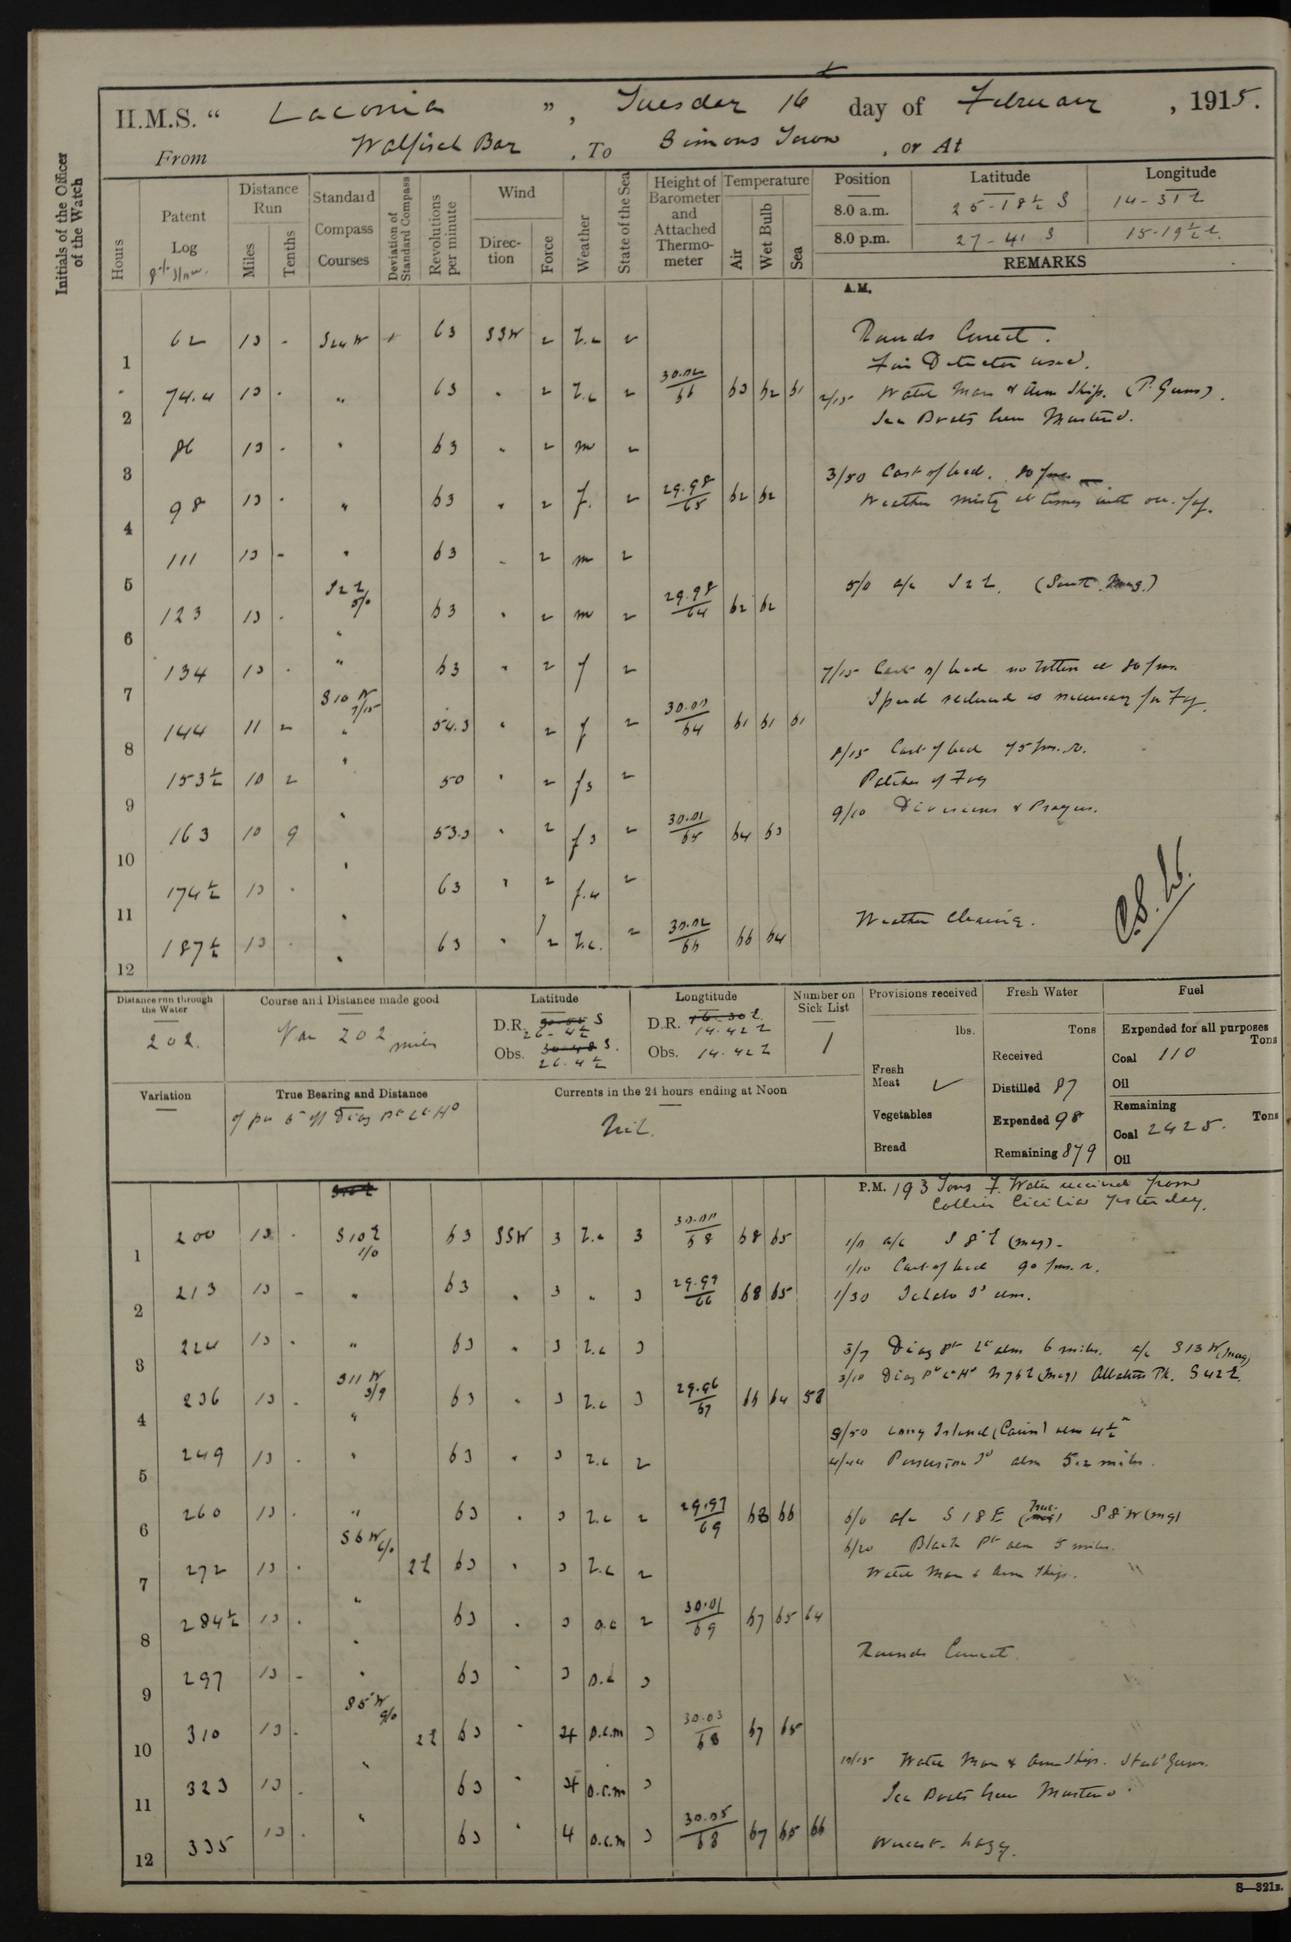 H.M.S. “ Laconia ”, Tuesday 16 day of February, 1915.
From Walfisch Bay, To Simons Town, or At
Initials of the Officer of the Watch
Hours
Patent Log
Distance Run
Miles
Tenths
Standard Compass Courses
Deviation of Standard Compass
Revolutions per minute
Wind
Direction
Force
Weather
State of the Sea
Height of Barometer and Attached Thermometer
Temperature
Air
Wet Bulb
Sea
Position Latitude Longitude
8.0 a.m. 25-18½ S 14-31 E
8.0 p.m. 27-41 S 15-19½ E
REMARKS
A.M.
1 62 13 - S24W 63 SSW 2 2
Rounds Correct.
2 74.4 13 - " 63 " 2 2 30.02/66 63 62 61
2/15 Water Man & Arm Ship. (P. Guns).
Sea Boats Crew Mustered.
3 86 13 - " 63 " 2 m 2
3/50 Cast of lead. 80 fms
4 98 13 - " 63 " 2 f. 2 29.98/65 62 62
Weather misty at times with occ. fog.
5 111 13 - " 63 2 m 2
5/0 a/c S2E. (South Mag.)
6 123 13 - S2E 5/0 63 " 2 m 2 29.98/64 62 62
7 134 13 - " 63 " 2 f 2
7/15 Cast of lead no bottom at 80 fms
Speed reduced as necessary for Fog.
8 144 11 2 S10W 7/15 54.3 " 2 f 2 30.00/64 61 61 61
8/15 Cast of lead 75 fms.
Patches of Fog
9 153½ 10 2 " 50 " 2 2
9/10 Divisions & Prayers.
10 163 10 9 " 53.3 " 2 2 30.01/65 64 63
11 174½ 13 - " 63 " 2 2
Weather Clearing.
12 187½ 13 - " 63 " 2 2 30.02/66 66 64
Distance run through the Water
202.
Course and Distance made good
202 miles
Latitude
D.R. 26-4½
Obs. 26.4½
Longtitude
D.R. 14.42 E
Obs. 14.42 E
Number on Sick List
1
Provisions received
lbs.
Fresh Meat ✓
Vegetables
Bread
Fresh Water
Tons
Received
Distilled 87
Expended 98
Remaining 879
Fuel
Expended for all purposes
Tons
Coal 110
Oil
Remaining
Coal 2425. Tons
Oil
Variation
True Bearing and Distance
Currents in the 24 hours ending at Noon
Nil.
P.M. 193 Tons F. Water received from
Collier Cicilia Yesterday.
1 200 13 - S10E 1/0 63 SSW 3 3 30.00/68 68 65
a/c S8E (mag).
1/10 Cast of lead 90 fms.
2 213 13 - " 63 " 3 " 3 29.99/66 68 65
1/30 Ichabo Id abm.
3 224 13 - " 63 " 3 3
3/7 Diaz Pt Lt abm 6 miles. a/c S13W (mag)
4 236 13 - S11W 3/9 63 " 3 3 29.96/67 66 64 58
3/10 Diaz Pt Lt Ho N76E (mag) Albatross Pk. S42E.
3/50 Long Island abm 4½
5 249 13 - " 63 " 3 2
4/44 Possession Id abm 5.2 miles.
6 260 13 - " 63 " 3 2 29.97/69 68 66
6/0 a/c S18E True S8W (mag)
6/20 Black Pt abm 5 miles.
7 272 13 - S6W 6/0 2E 63 " 3 2
Water Man & Arm Ship.
8 284½ 13 - " 63 " 3 o.c 2 30.01/69 67 65 64
Rounds Correct
9 297 13 - " 63 " 3 o.c 3
10 310 13 - S5W 9/0 2E 63 " 4 o.c.m 3 30.03/68 67 65
10/15 Water Man & Arm Ship. Stabd Guns.
11 323 13 - " 63 " 4 o.c.m 3
Sea Boats Crew Mustered.
12 335 13 - " 63 " 4 o.c.m 3 30.05/68 67 65 66
Overcast. hazy.
S—321B.